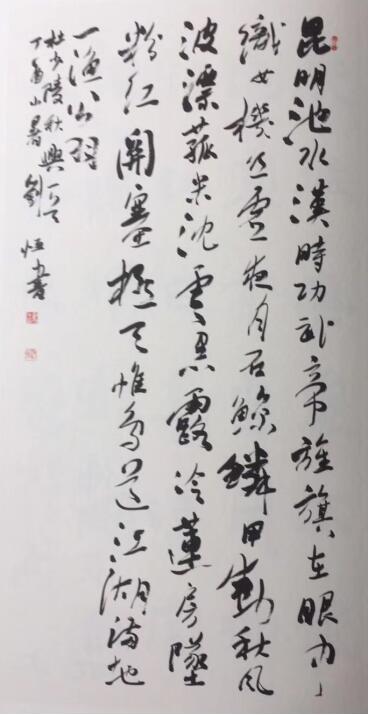 昆明池水漢時功武帝旌旗在眼中
織女機絲虛夜月石鯨鱗甲動秋風
波漂菰米沈雲黑露冷蓮房墜
粉紅關塞極天惟鳥道江湖滿地
一漁翁
杜少陵秋興一首
丁酉小暑劉恒書